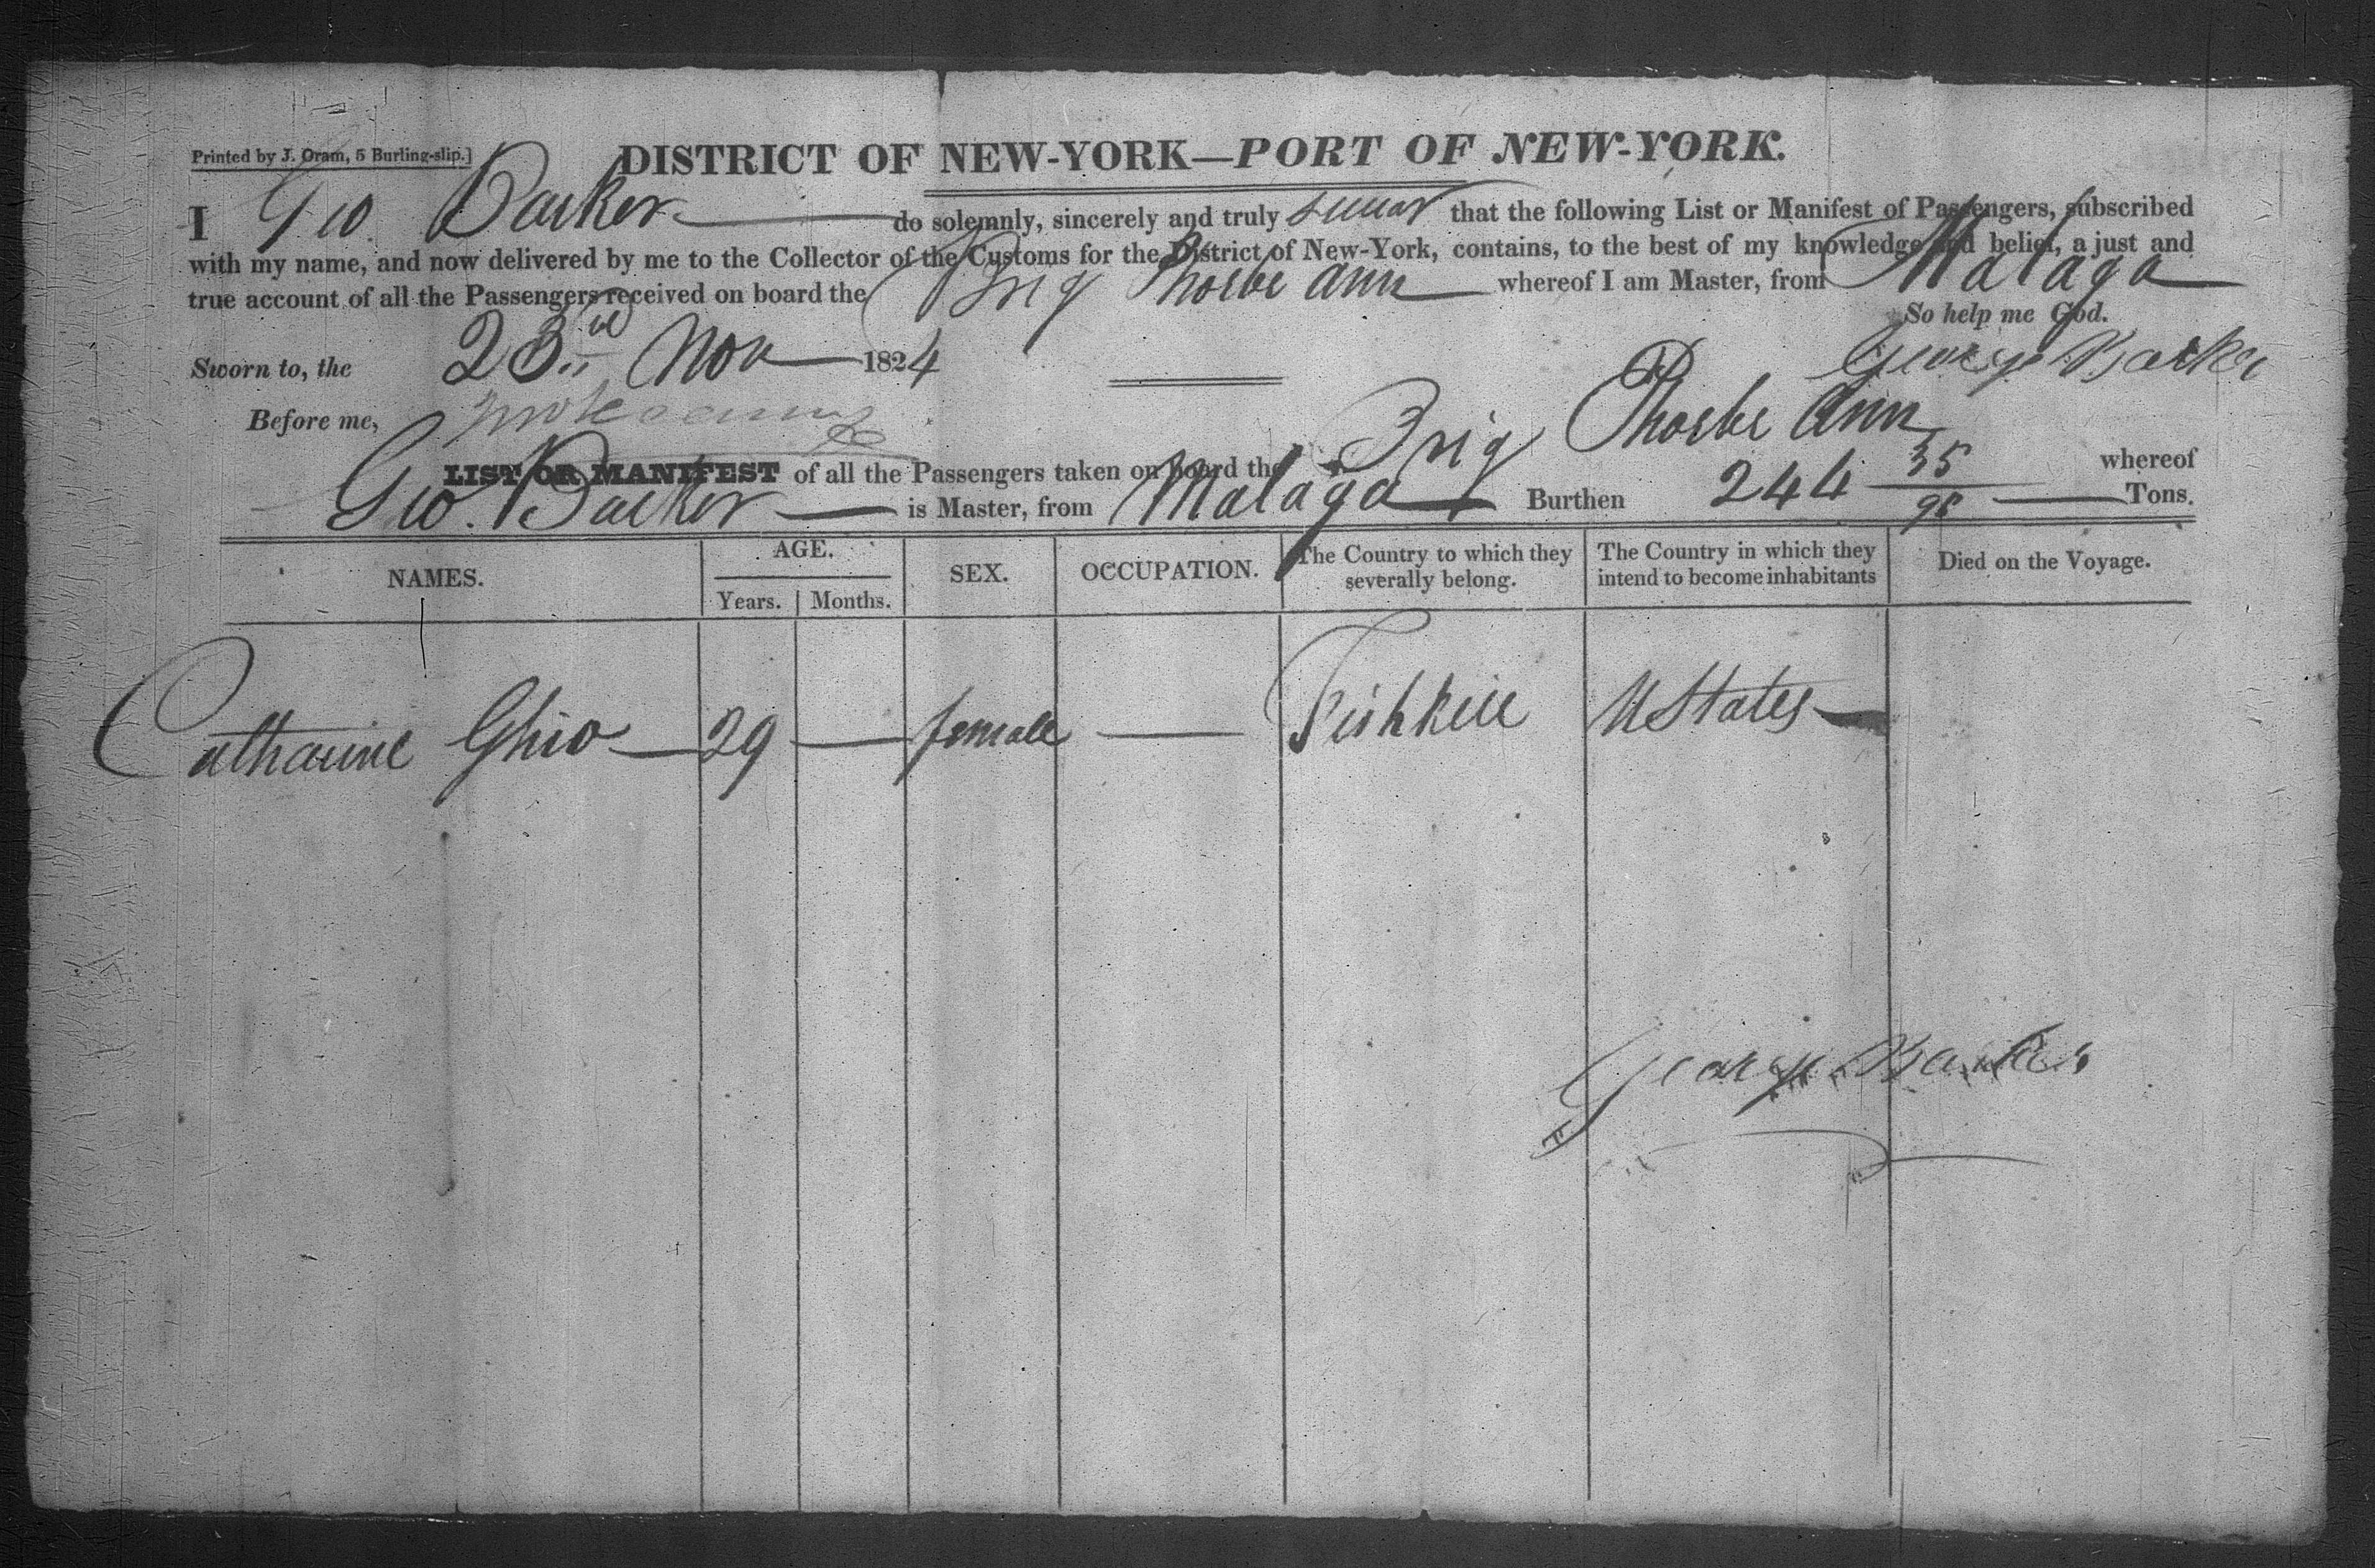 Printed by J. Oram, 5 Burling-slip.]
DISTRICT OF NEW-YORK—PORT OF NEW-YORK.
I Geo. Barker do solemnly, sincerely and truly swear that the following List or Manifest of Passengers, subscribed
with my name, and now delivered by me to the Collector of the Customs for the District of New-York, contains, to the best of my knowledge and belief, a just and
true account of all the Passengers received on board the Brig Phoebe Ann whereof I am Master, from Malaga
So help me God.
Sworn to, the 23rd Nov 1824
George Barker
Before me,
LIST OR MANIFEST of all the Passengers taken on board the Brig Phoebe Ann whereof
Geo. Barker is Master, from Malaga Burthen 244 35/95 Tons.
NAMES. AGE. SEX. OCCUPATION. The Country to which they severally belong. The Country in which they intend to become inhabitants Died on the Voyage.
Years. Months.
Catharine Ghio — 29 — female — Fishkill U States —
George Barker